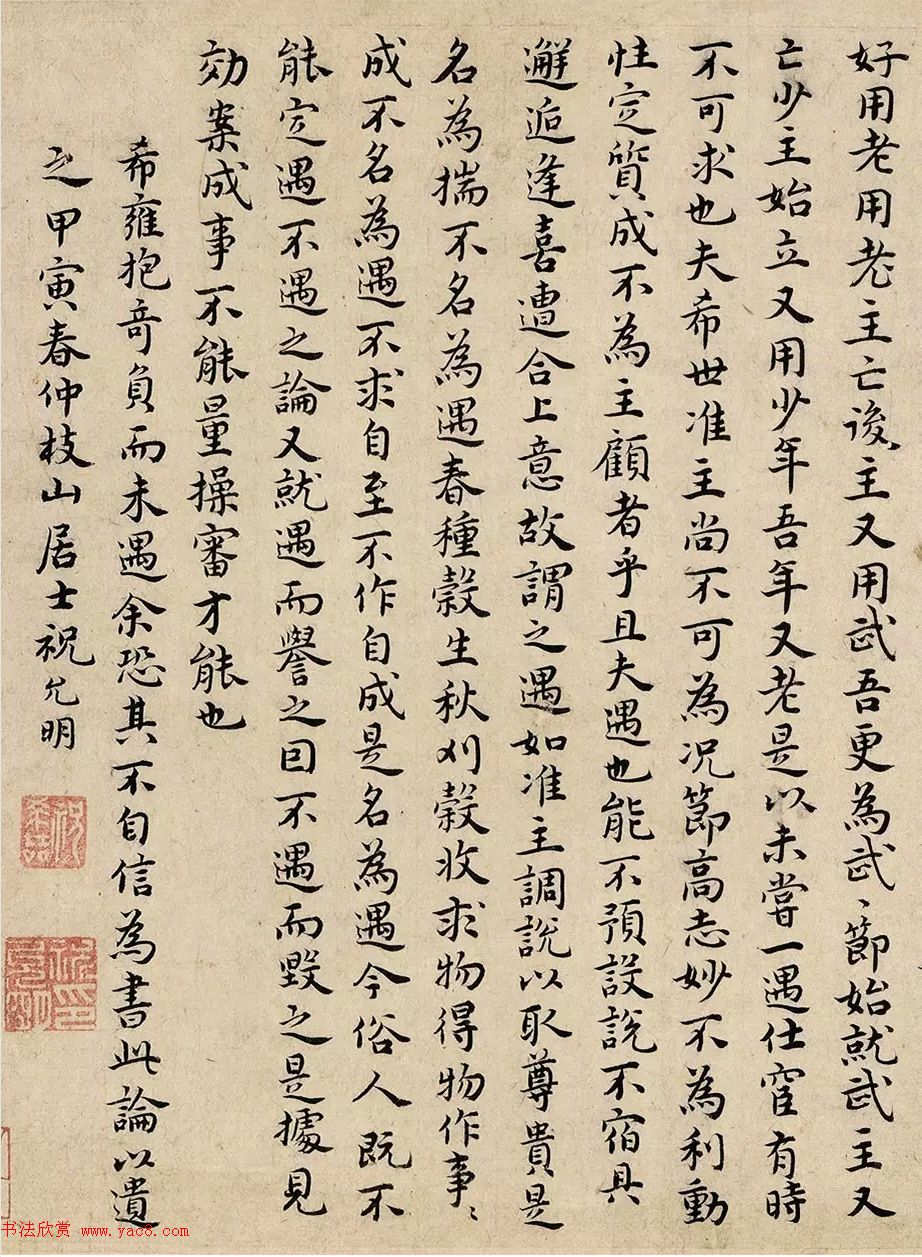 好用老用老主亡後主又用武吾更為武〻節始就武主又
亡少主始立又用少年吾年又老是以未嘗一遇仕宦有時
不可求也夫希世准主尚不可為况節高志妙不為利動
性定質成不為主顧者乎且夫遇也能不預設說不宿具
邂逅逢喜遭合上意故謂之遇如准主調說以取尊貴是
名為揣不名為遇春種穀生秋刈穀收求物得物作事〻
成不名為遇不求自至不作自成是名為遇今俗人既不
能定遇不遇之論又就遇而譽之因不遇而毀之是據見
効案成事不能量操審才能也
希雍抱奇負而未遇余恐其不自信為書此論以遺
之甲寅春仲枝山居士祝允明
书法欣赏 www.yac8.com